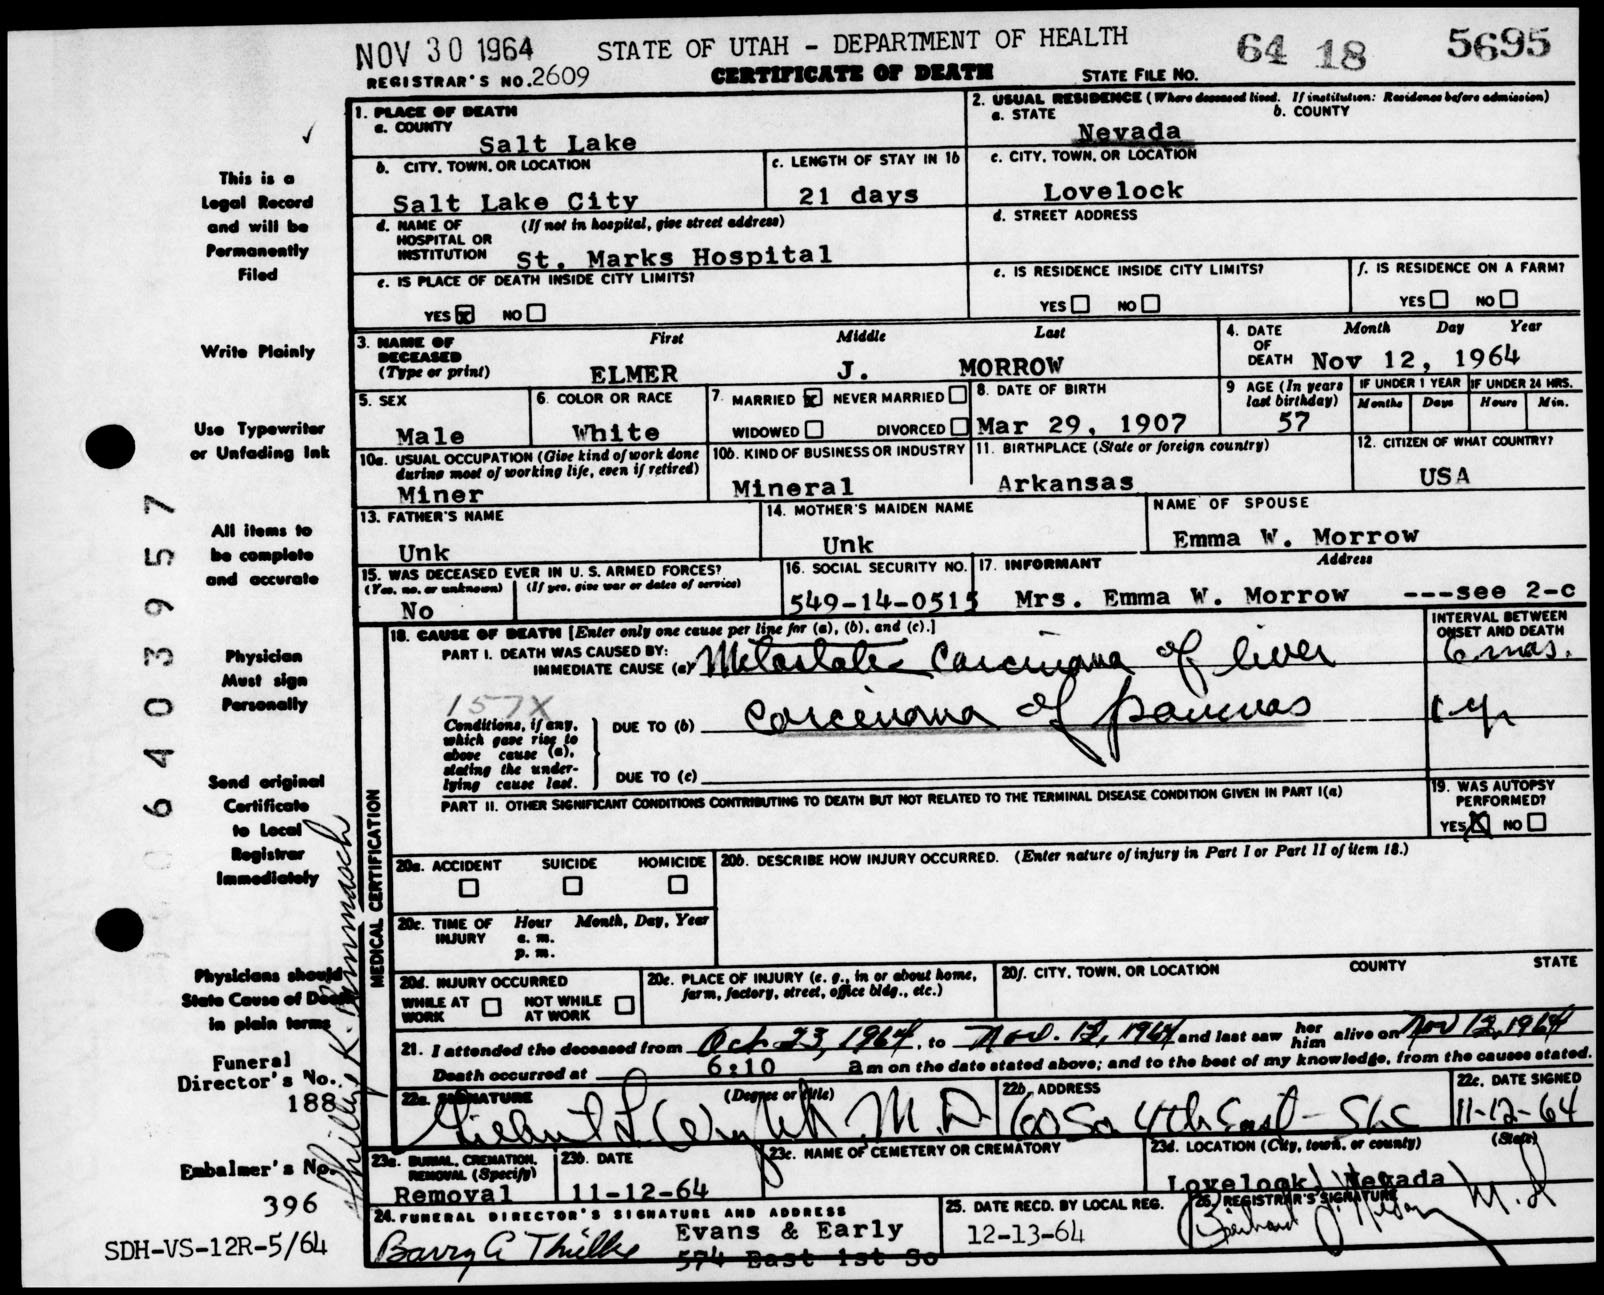 NOV 30 1964 STATE OF UTAH - DEPARTMENT OF HEALTH 64 18 5695
REGISTRAR'S NO. 2609 CERTIFICATE OF DEATH STATE FILE NO.
1. PLACE OF DEATH
a. COUNTY
Salt Lake
2. USUAL RESIDENCE (Where deceased lived. If institution: Residence before admission)
a. STATE b. COUNTY
Nevada
b. CITY, TOWN, OR LOCATION
Salt Lake City
c. LENGTH OF STAY IN 1b
21 days
c. CITY, TOWN, OR LOCATION
Lovelock
d. NAME OF (If not in hospital, give street address)
HOSPITAL OR
INSTITUTION St. Marks Hospital
d. STREET ADDRESS
e. IS PLACE OF DEATH INSIDE CITY LIMITS?
YES x NO
e. IS RESIDENCE INSIDE CITY LIMITS?
YES NO
f. IS RESIDENCE ON A FARM?
YES NO
3. NAME OF First Middle Last
DECEASED
(Type or print) ELMER J. MORROW
4. DATE Month Day Year
OF
DEATH Nov 12, 1964
5. SEX
Male
6. COLOR OR RACE
White
7. MARRIED x NEVER MARRIED
WIDOWED DIVORCED
8. DATE OF BIRTH
Mar 29, 1907
9 AGE (In years
last birthday)
57
IF UNDER 1 YEAR IF UNDER 24 HRS.
Months Days Hours Min.
10a. USUAL OCCUPATION (Give kind of work done
during most of working life, even if retired)
Miner
10b. KIND OF BUSINESS OR INDUSTRY
Mineral
11. BIRTHPLACE (State or foreign country)
Arkansas
12. CITIZEN OF WHAT COUNTRY?
USA
13. FATHER'S NAME
Unk
14. MOTHER'S MAIDEN NAME
Unk
NAME OF SPOUSE
Emma W. Morrow
15. WAS DECEASED EVER IN U. S. ARMED FORCES?
(Yes, no, or unknown) (If yes, give war or dates of service)
No
16. SOCIAL SECURITY NO.
549-14-0515
17. INFORMANT Address
Mrs. Emma W. Morrow ---see 2-c
MEDICAL CERTIFICATION
18. CAUSE OF DEATH [Enter only one cause per line for (a), (b), and (c).]
INTERVAL BETWEEN
ONSET AND DEATH
PART I. DEATH WAS CAUSED BY:
IMMEDIATE CAUSE (a) Metastatic Carcinoma of liver 6 mos.
157X
Conditions, if any,
which gave rise to
above cause (a),
stating the under-
lying cause last.
DUE TO (b) Carcinoma of pancreas 1 yr
DUE TO (c)
PART II. OTHER SIGNIFICANT CONDITIONS CONTRIBUTING TO DEATH BUT NOT RELATED TO THE TERMINAL DISEASE CONDITION GIVEN IN PART I(a)
19. WAS AUTOPSY
PERFORMED?
YES X NO
20a. ACCIDENT SUICIDE HOMICIDE
20b. DESCRIBE HOW INJURY OCCURRED. (Enter nature of injury in Part I or Part II of item 18.)
20c. TIME OF Hour Month, Day, Year
INJURY a. m.
p. m.
20d. INJURY OCCURRED
WHILE AT NOT WHILE
WORK AT WORK
20e. PLACE OF INJURY (e. g., in or about home,
farm, factory, street, office bldg., etc.)
20f. CITY, TOWN, OR LOCATION COUNTY STATE
21. I attended the deceased from Oct 23, 1964, to Nov. 12, 1964 and last saw her him alive on Nov 12, 1964
Death occurred at 6:10 am on the date stated above; and to the best of my knowledge, from the causes stated.
22a. SIGNATURE (Degree or title)
Gilbert L. Wright M.D.
22b. ADDRESS
60 So 4th East - SLC
22c. DATE SIGNED
11-12-64
23a. BURIAL, CREMATION,
REMOVAL (Specify)
Removal
23b. DATE
11-12-64
23c. NAME OF CEMETERY OR CREMATORY
23d. LOCATION (City, town, or county) (State)
Lovelock, Nevada
24. FUNERAL DIRECTOR'S SIGNATURE AND ADDRESS
Barry G Thielke Evans & Early
574 East 1st So
25. DATE RECD. BY LOCAL REG.
12-13-64
26. REGISTRAR'S SIGNATURE
M.D
This is a
Legal Record
and will be
Permanently
Filed
Write Plainly
Use Typewriter
or Unfading Ink
All items to
be complete
and accurate
Physician
Must sign
Personally
Send original
Certificate
to Local
Registrar
Immediately
Physicians should
State Cause of Death
in plain terms
Funeral
Director's No.
188
Embalmer's No.
396
SDH-VS-12R-5/64
6403957